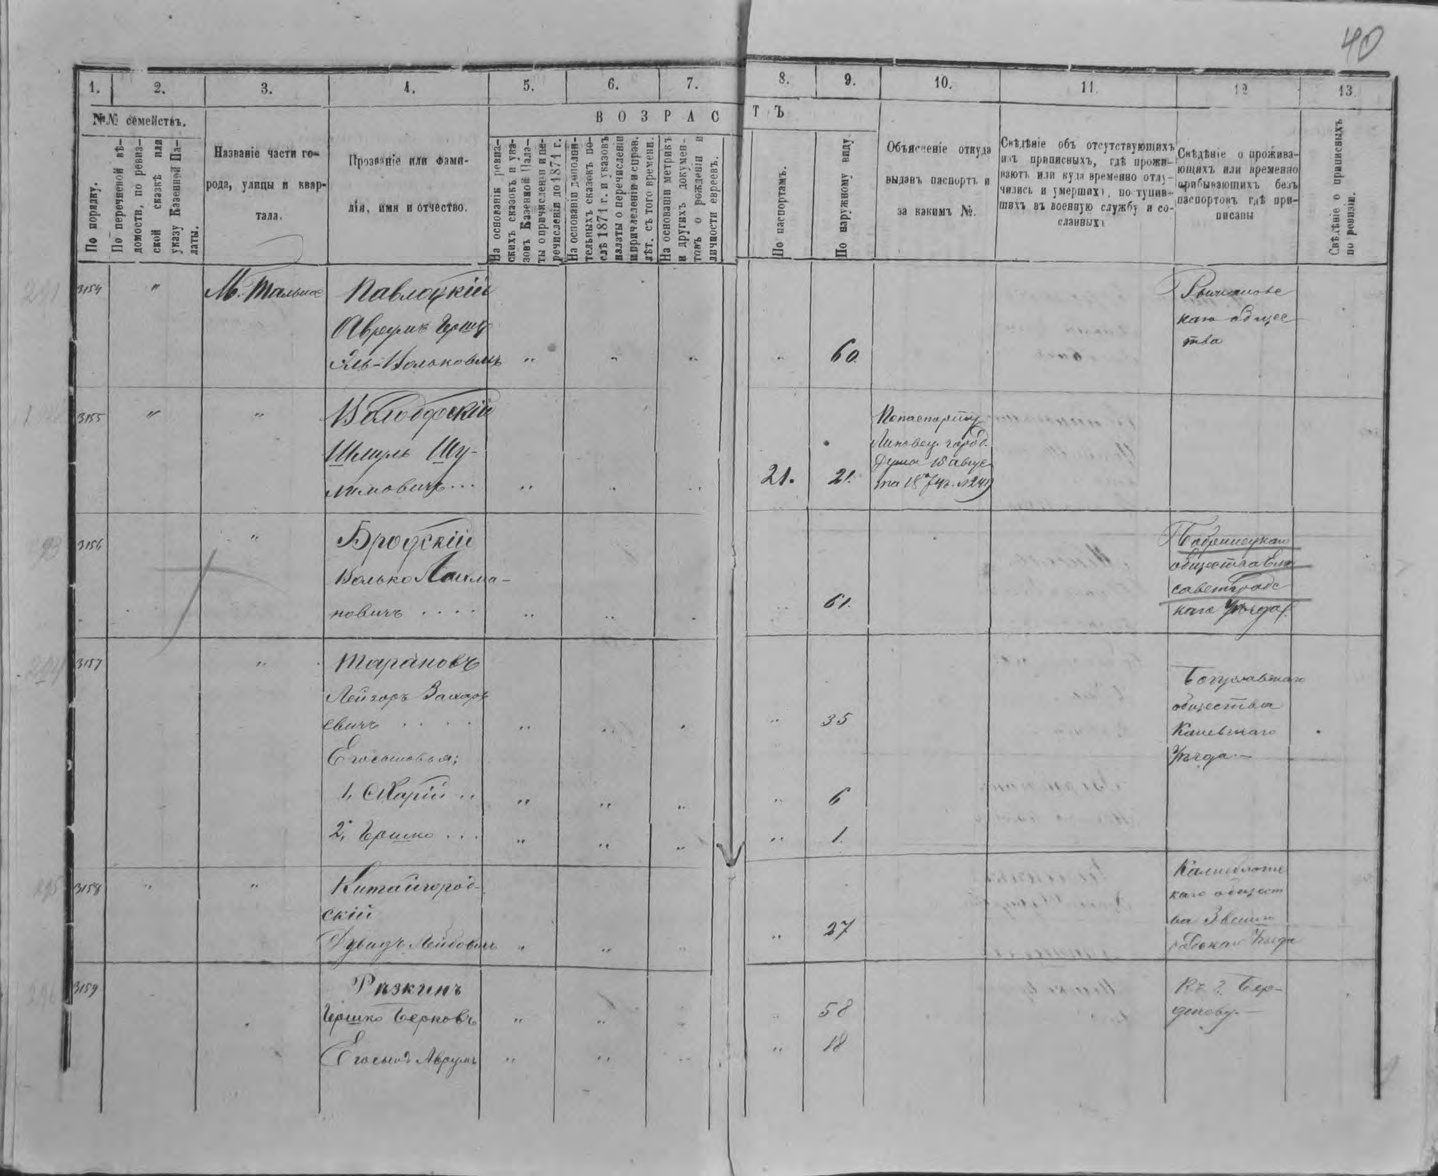 40
1. 2. 3. 4. 5. 6. 7. 8. 9. 10. 11. 12 13
№№ семействъ.
ВОЗРАСТЪ
По порядку.
По перечневой вѣ-
домости, по ревиз-
ской сказкѣ или
указу Казенной Па-
латы.
Названіе части го-
рода, улицы и квар-
тала.
Прозваніе или фами-
лія, имя и отчество.
На основаніи ревиз-
скихъ сказокъ и ука-
зовъ Казенной Пала-
ты о причисленіи и пе-
речисленіи до 1874 г.
На основаніи дополни-
тельныхъ сказокъ по-
слѣ 1874 г. и указовъ
палаты о перечисленіи
и причисленіи и справ.
лѣт. съ того времени.
На основаніи метрикъ
и другихъ докумен-
товъ о рожденіи и
личности евреевъ.
По паспортамъ.
По наружному виду.
Объясненіе откуда
выданъ паспортъ и
за какимъ №.
Свѣдѣніе объ отсутствующихъ
изъ приписныхъ, гдѣ прожи-
ваютъ или куда временно отлу-
чились и умершихъ, поступив-
шихъ въ военную службу и со-
сланныхъ
Свѣдѣніе о прожива-
ющихъ или временно
прибывающихъ безъ
паспортовъ гдѣ при-
писаны
Свѣдѣніе о приписныхъ
по ревизіи.
3154 " М. Тальное Павлоцкій
Аврумъ Герш
Эль-Вольковичъ " " " " 60
общес
тва
3155 " "
Шмуль Шу-
лимовичъ . . . " " " 21. 21.
Попаспорту
Липовец. город.
Думы 15 авгус
та 1874 г. № 249
3156 " Бродскій
Волько Лейма-
новичъ . . . . " " " 61.
Бобринецкаго
общества Ели
саветградс
каго Уѣзда
3157 " Тарановъ
Лейзоръ Захарь
евичъ . . . . " " " " 35
Егосыновья;
1, . . " " " " 6
2, Гершко . . . " " " " 1.
Богуславскаго
общества
Каневскаго
Уѣзда
3158 " " Китайгород-
скій
Дувидъ Лейбовичъ " " " " 27
Калниболотс
каго общест
ва Звениго
родскаго Уѣзда
3159 Рязкинъ
Гершко Берковъ " " " " 58
Егосынъ Аврумъ " " " " 18
Къ г. Бер-
дичеву.